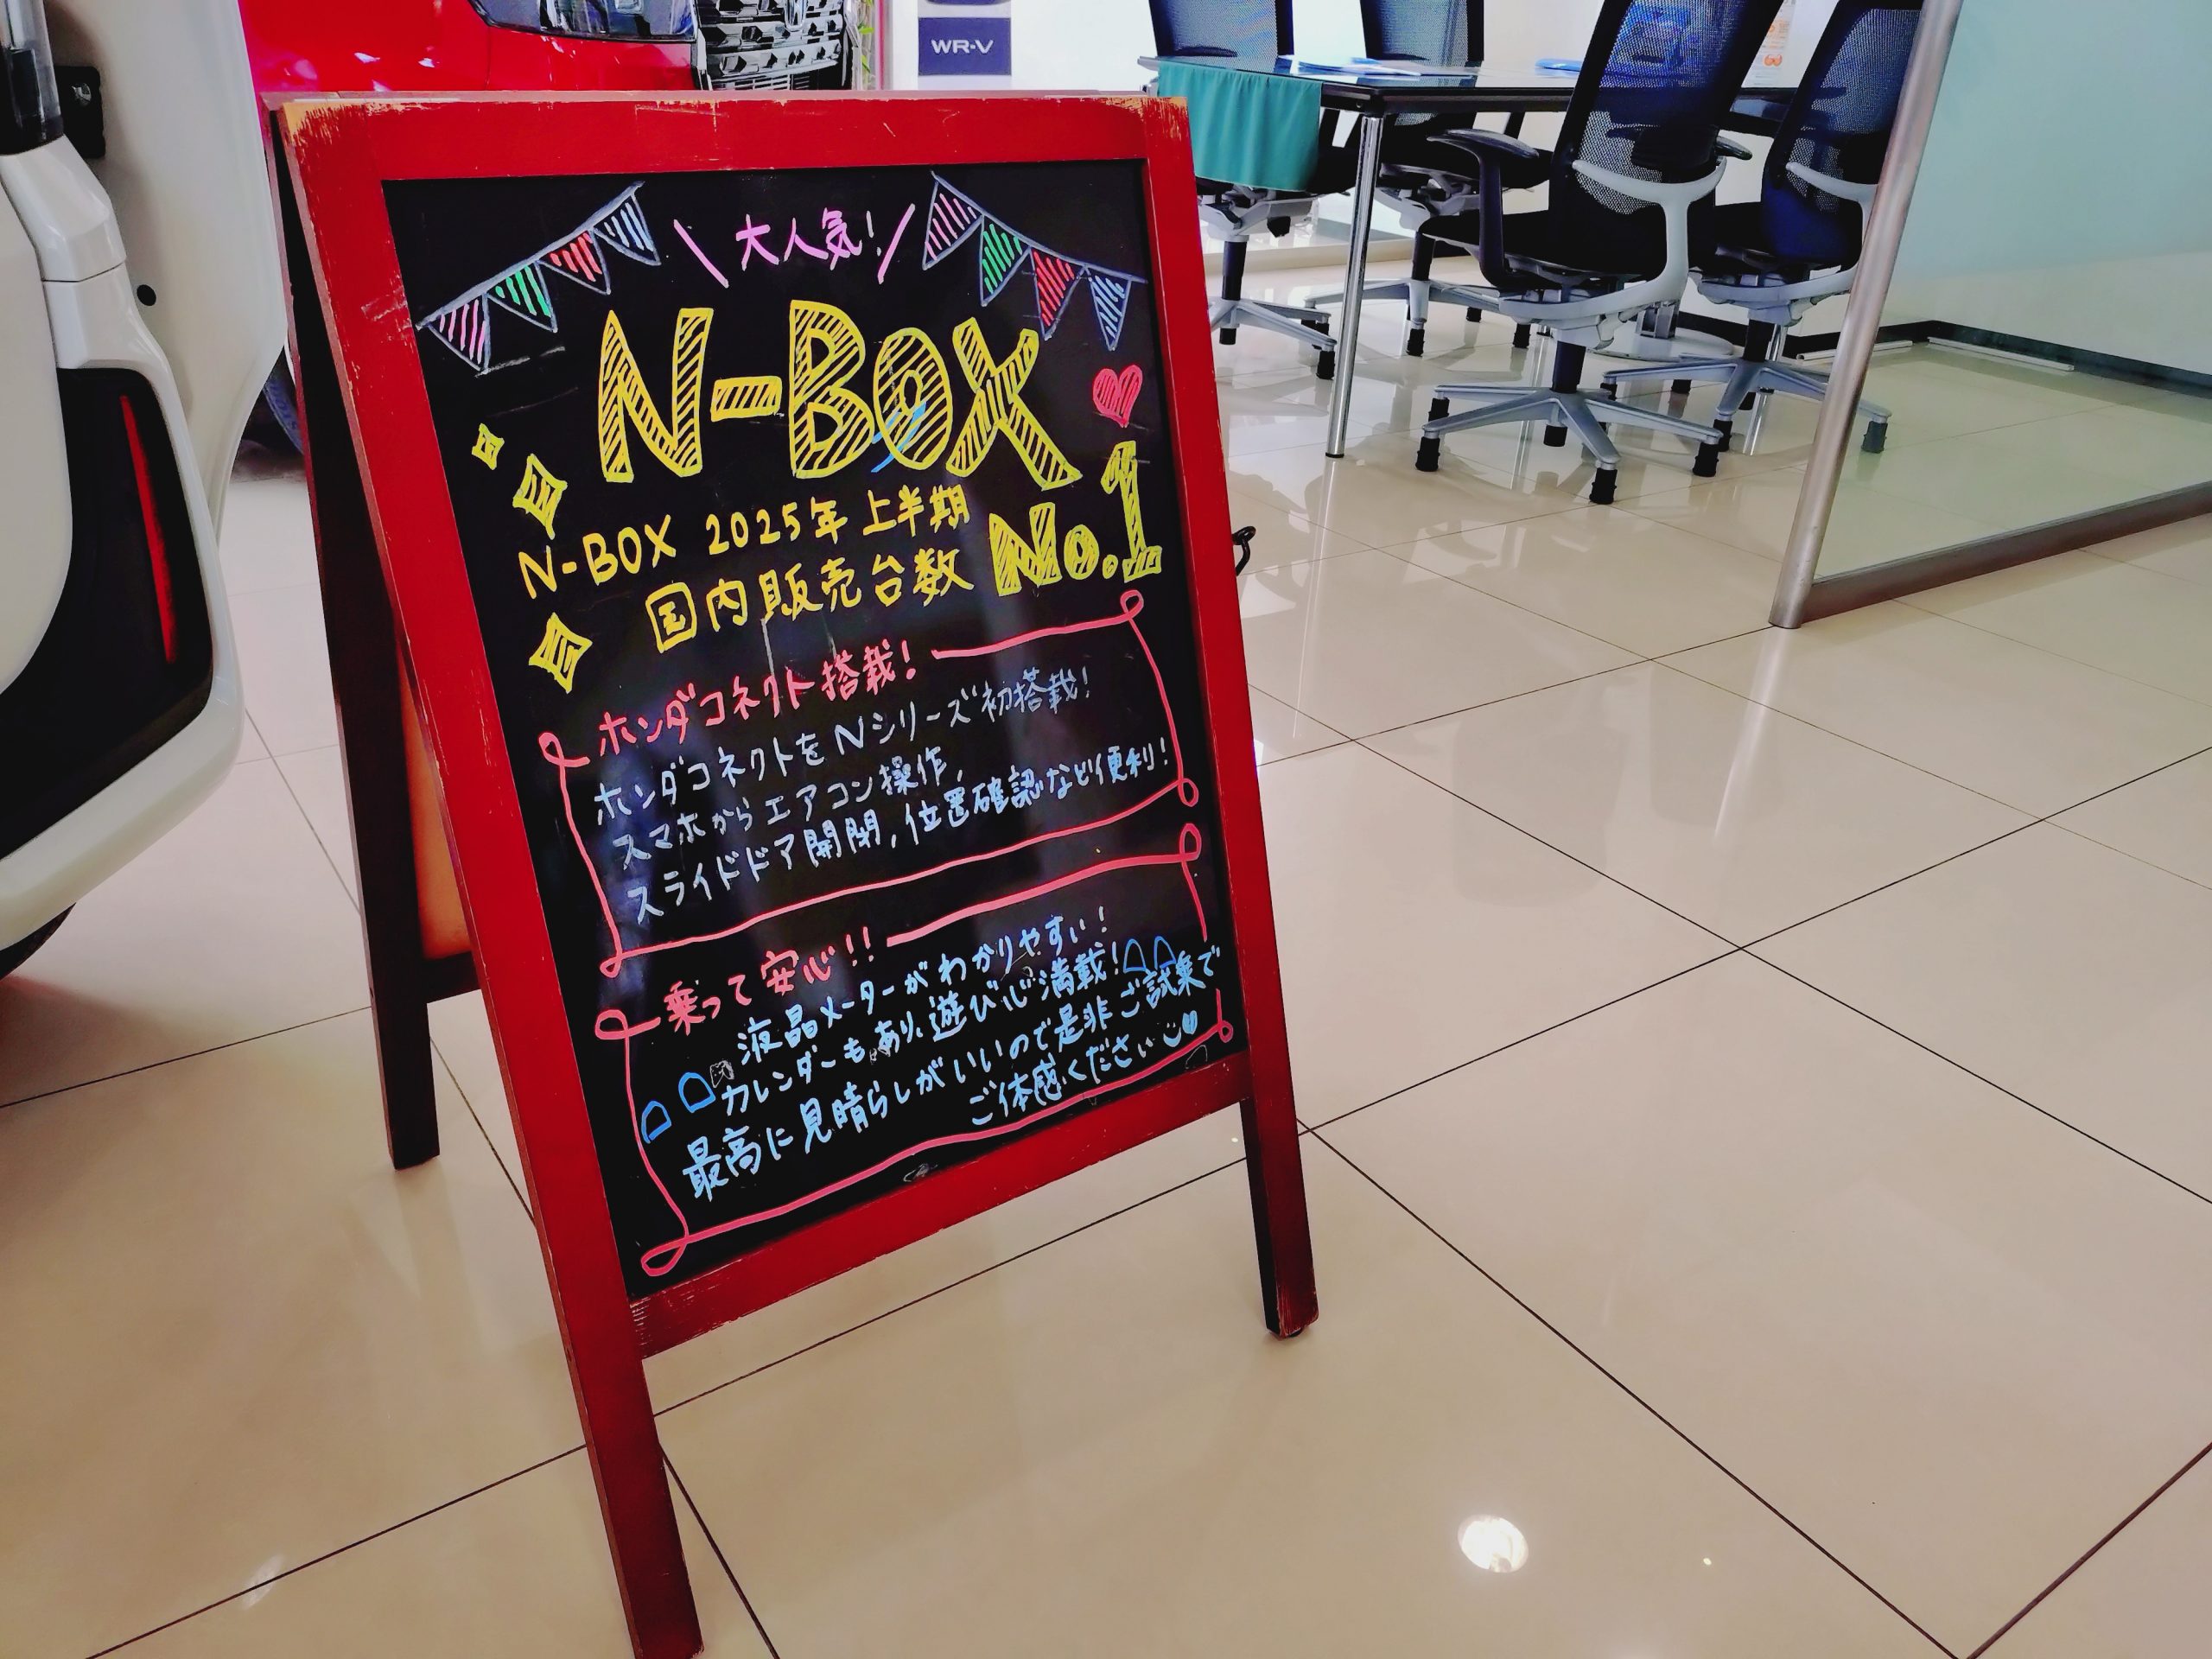 WR-V
\大人気!/
N-BOX
N-BOX 2025年 上半期
国内販売台数 No.1
ホンダコネクト搭載!
ホンダコネクトをNシリーズ初搭載!
スマホからエアコン操作,
スライドドア開閉,位置確認など便利!
乗って安心!!
液晶メーターがわかりやすい!
カレンダーもあり、遊び心満載!
最高に見晴らしがいいので是非ご試乗で
ご体感ください